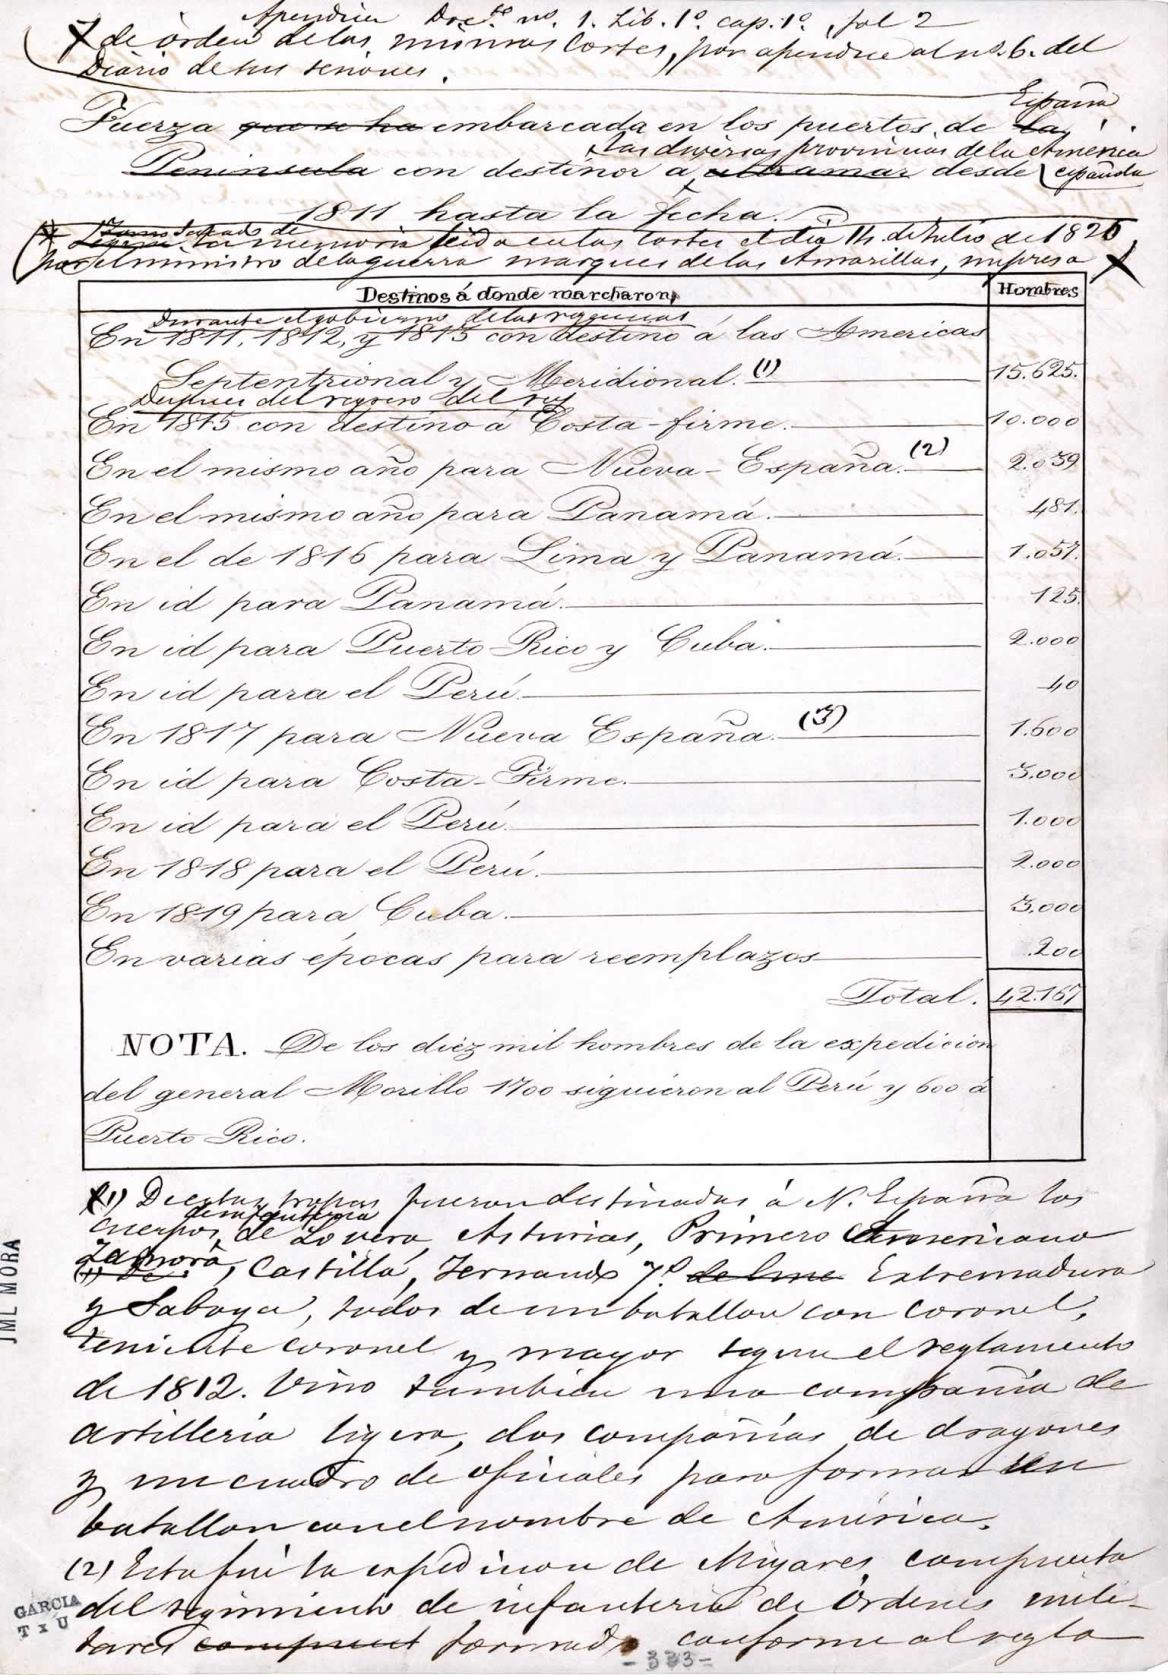 Apendice Docto no. 1. Lib. 1º cap. 1º, fol 2
X de órden de las mismas Cortes, por apendice al no. 6. del
Diario de sus sesiones.
España
Fuerza que se ha embarcada en los puertos de la
las diversas provincias de la América
Peninsula con destino á ultramar desde española
1811 hasta la fecha.
Tomo sacado de
Segun la memoria leida en las Cortes el dia 14 de Julio de 1820
por el ministro de la guerra marques de las Amarillas, impresa X
Destinos á donde marcharon, Hombres
Durante el gobierno de las regencias
En 1811, 1812, y 1813 con destino á las Americas
Septentrional y Meridional. (1) 15.625.
Despues del regreso del rey
En 1815 con destino á Costa-firme. 10.000
En el mismo año para Nueva-España. (2) 2.039
En el mismo año para Panamá. 481.
En el de 1816 para Lima y Panamá. 1.057.
En id para Panamá. 125.
En id para Puerto Rico y Cuba. 2.000
En id para el Perú. 40
En 1817 para Nueva España. (3) 1.600
En id para Costa-Firme. 3.000
En id para el Perú. 1.000
En 1818 para el Perú. 2.000
En 1819 para Cuba. 3.000
En varias épocas para reemplazos 200
Total. 42.167
NOTA. De los diez mil hombres de la expedicion
del general Morillo 1700 siguieron al Perú y 600 á
Puerto Rico.
(1) De estas tropas fueron destinadas á N. España los
de infanteria
cuerpos de Lovera, Asturias, Primero Americano
Zamora, Castilla, Fernando 7º Extremadura
(1) De
y Saboya, todos de un batallon con coronel,
teniente coronel y mayor segun el reglamento
de 1812. Vino tambien una compañia de
artilleria ligera, dos compañias de dragones
y un cuadro de oficiales para formar un
batallon con el nombre de América.
(2) Esta fué la expedicion de Miyares, compuesta
del regimiento de infanteria de Ordenes mili-
tares compuest formado conforme al regla
- 333 -
JML MORA
GARCIA
T x U